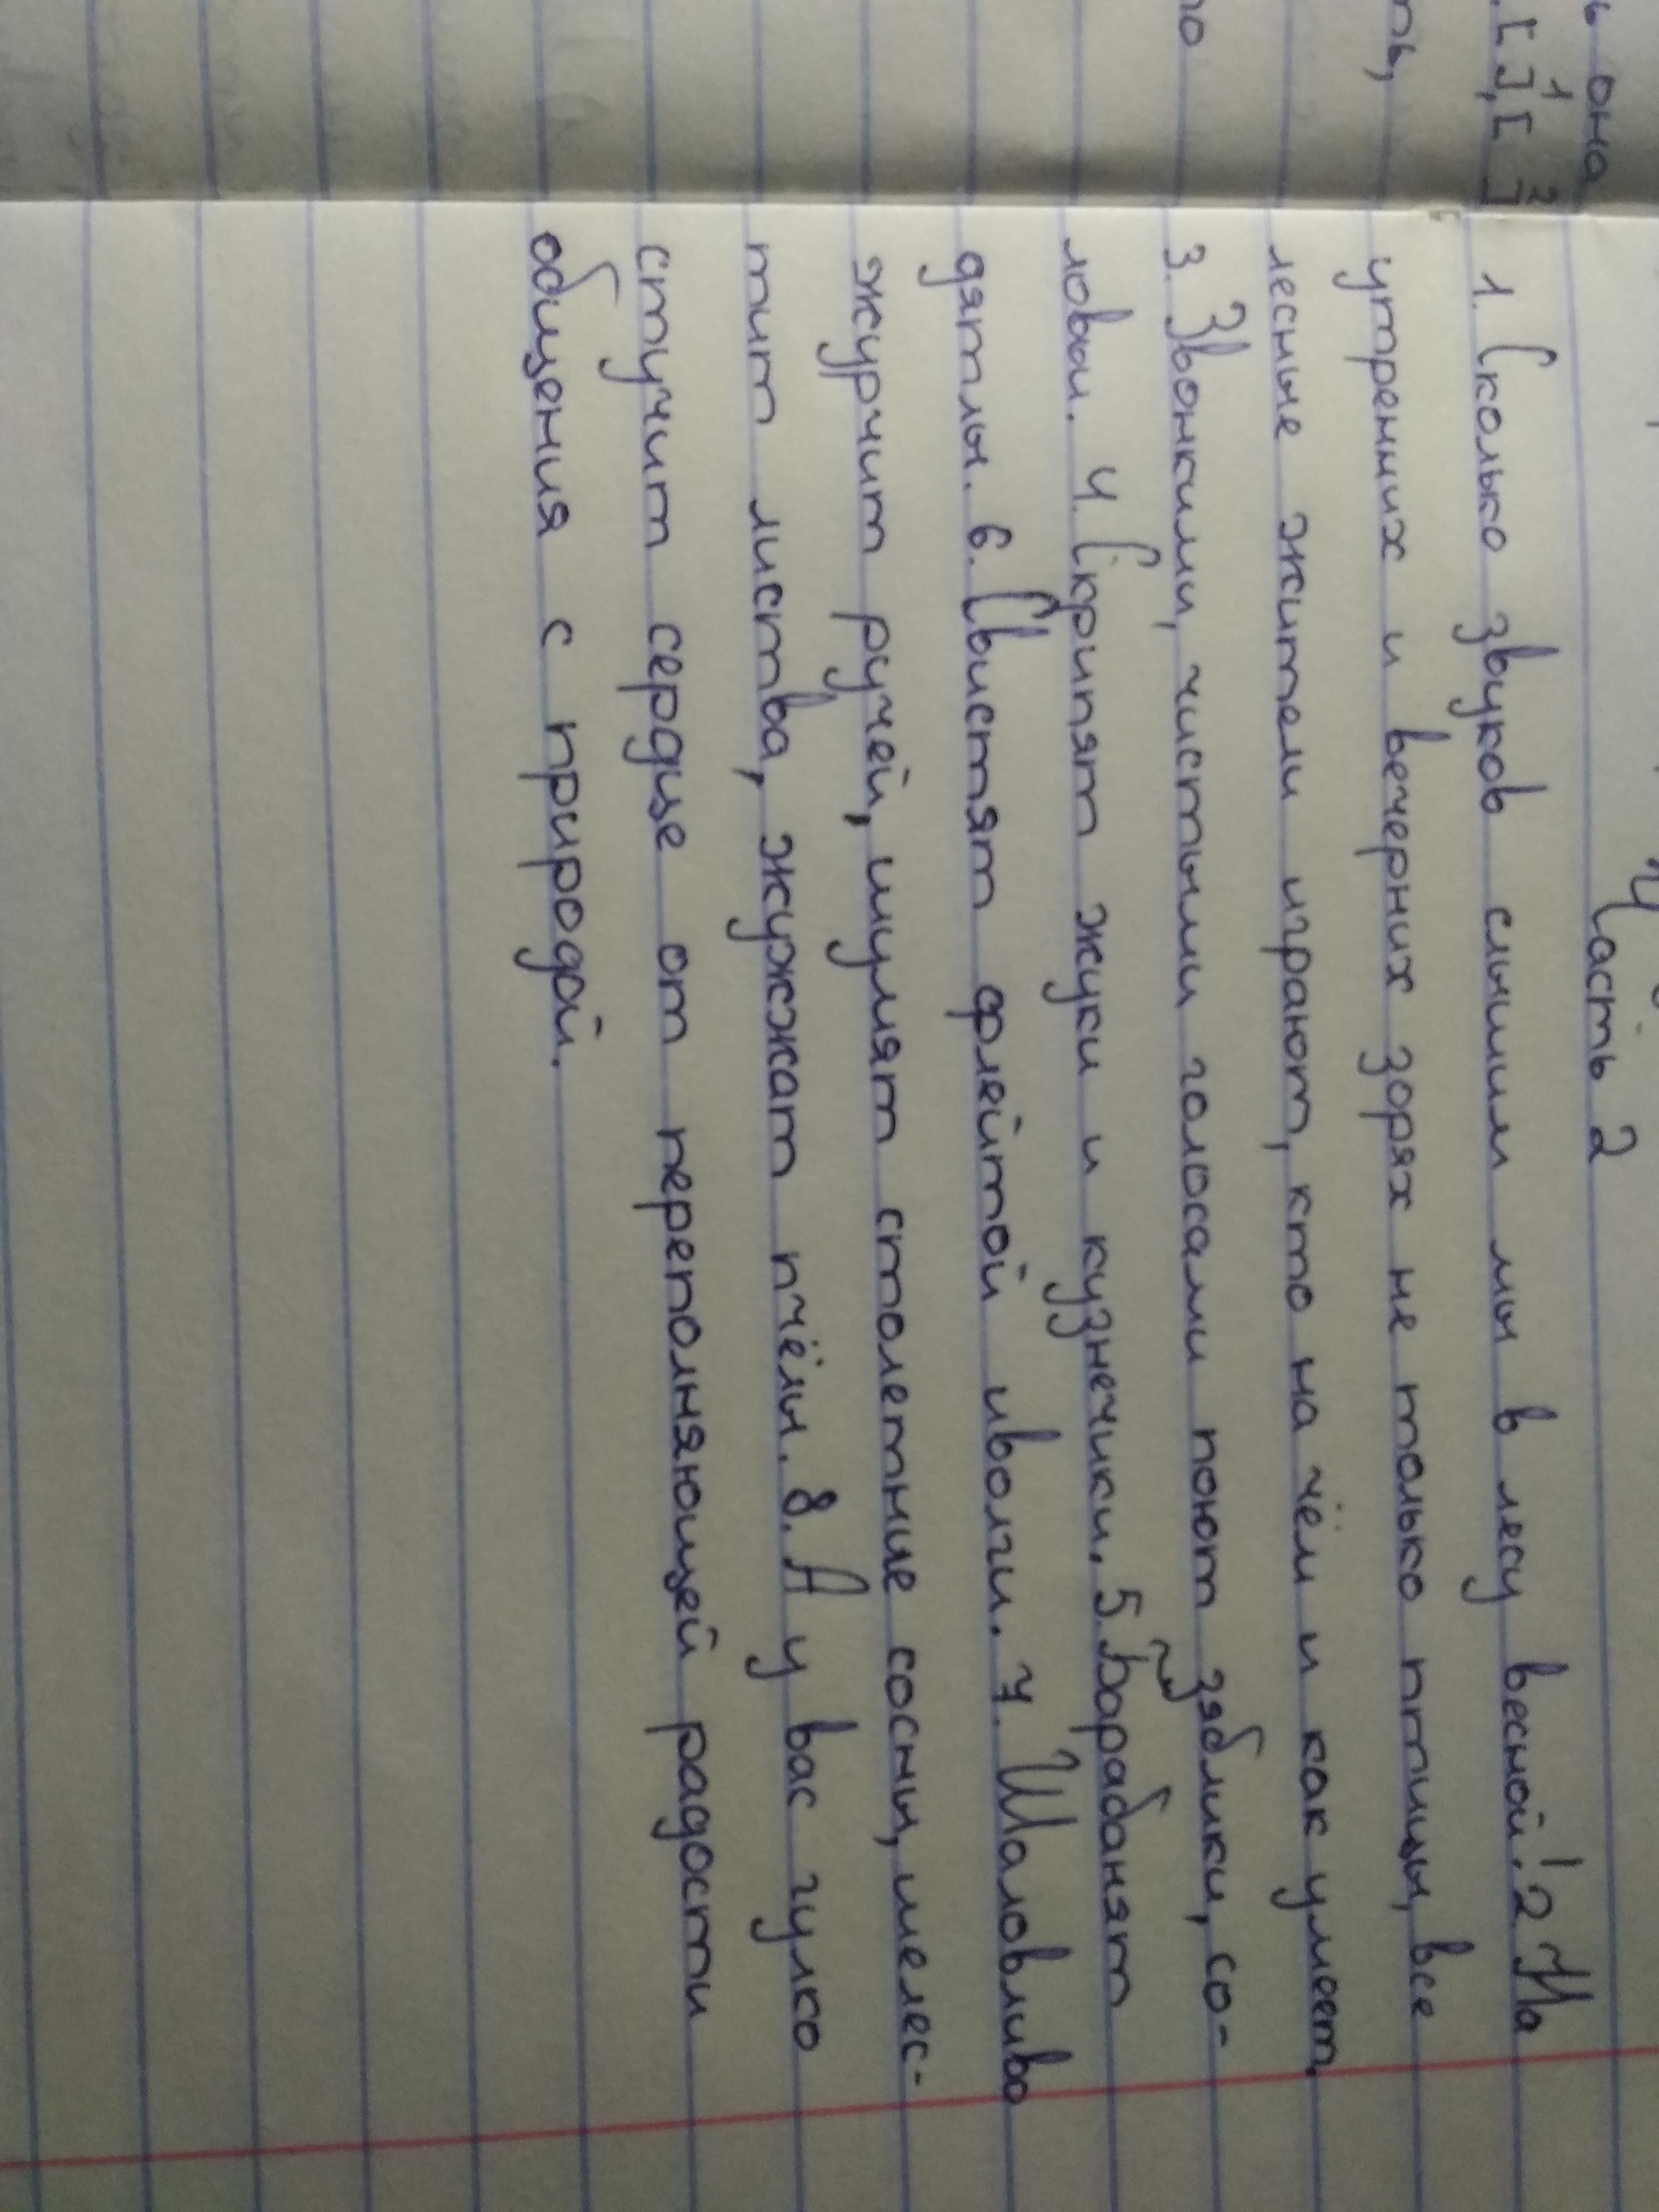 она
[ ], [ ]
1 2
ть,
то
Часть 2
1. Сколько звуков слышим мы в лесу весной! 2 На
утренних и вечерних зорях не только птицы, все
лесные жители играют, кто на чём и как умеет.
3. Звонкими, чистыми голосами поют зяблики, со-
ловьи. 4. Скрипят жуки и кузнечики. 5. Барабанят
дятлы. 6. Свистят флейтой иволги. 7. Шаловливо
журчит ручей, шумят столетние сосны, шелес-
тит листва, жужжат пчёлы. 8. А у вас гулко
стучит сердце от переполняющей радости
общения с природой.